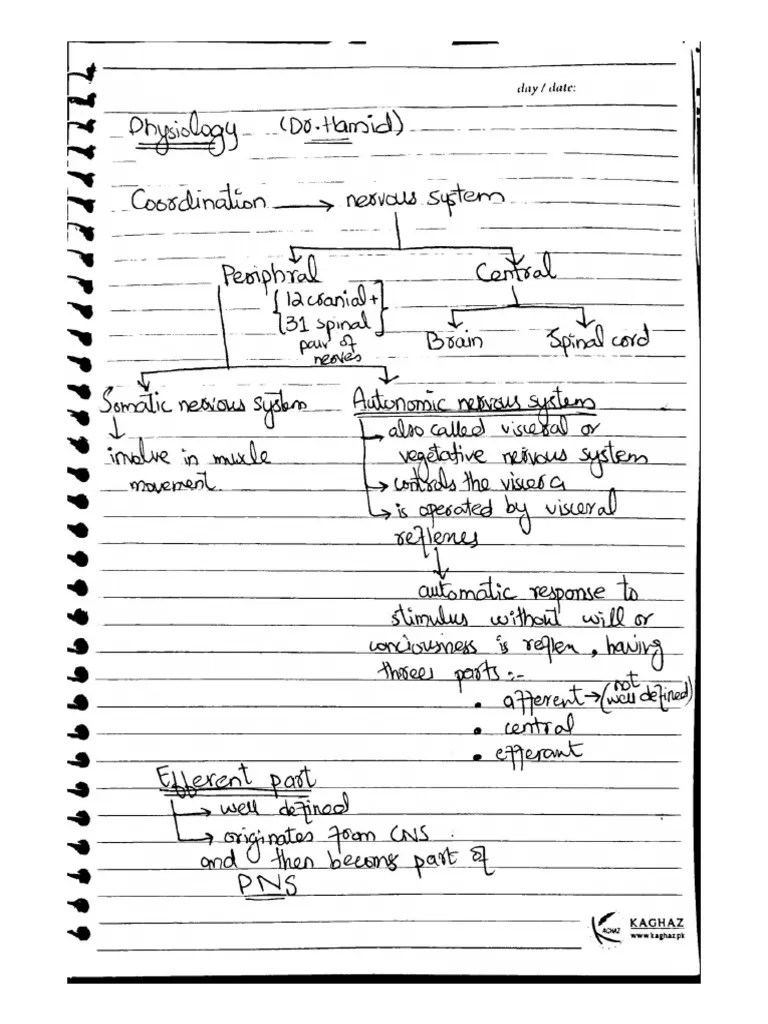 day / date:
Physiology (Dr. Hamid)
Coordination → nervous system
Periphral Central
{12 cranial +
31 spinal}
pair of
nerves
Brain Spinal cord
Somatic nervous system Autonomic nervous system
→ also called visceral or
involve in muscle vegetative nervous system
movement. → controls the viscera
→ is operated by visceral
reflexes
automatic response to
stimulus without will or
conciousness is reflex, having
threes parts:-
• afferent → (not well defined)
• central
• efferant
Efferent part
→ well defined
→ originates from CNS
and then become part of
PNS
KAGHAZ
www.kaghaz.pk